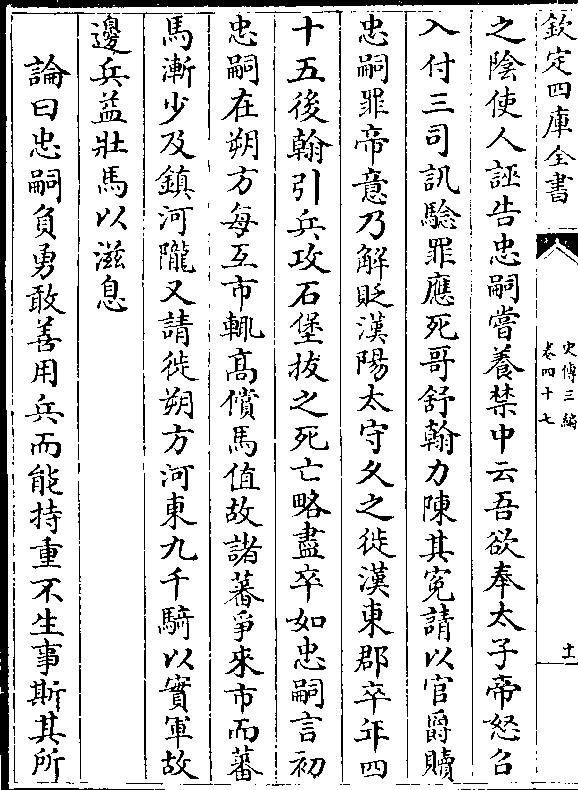 欽定四庫全書
史傳三編
卷四十七
十一
之陰使人誣告忠嗣嘗養禁中云吾欲奉太子帝怒召
入付三司訊驗罪應死哥舒翰力陳其冤請以官爵贖
忠嗣罪帝意乃解貶漢陽太守久之徙漢東郡卒年四
十五後翰引兵攻石堡拔之死亡略盡卒如忠嗣言初
忠嗣在朔方每互市輒高償馬值故諸蕃爭來市而蕃
馬漸少及鎮河隴又請徙朔方河東九千騎以實軍故
邊兵益壯馬以滋息
論曰忠嗣負勇敢善用兵而能持重不生事斯其所